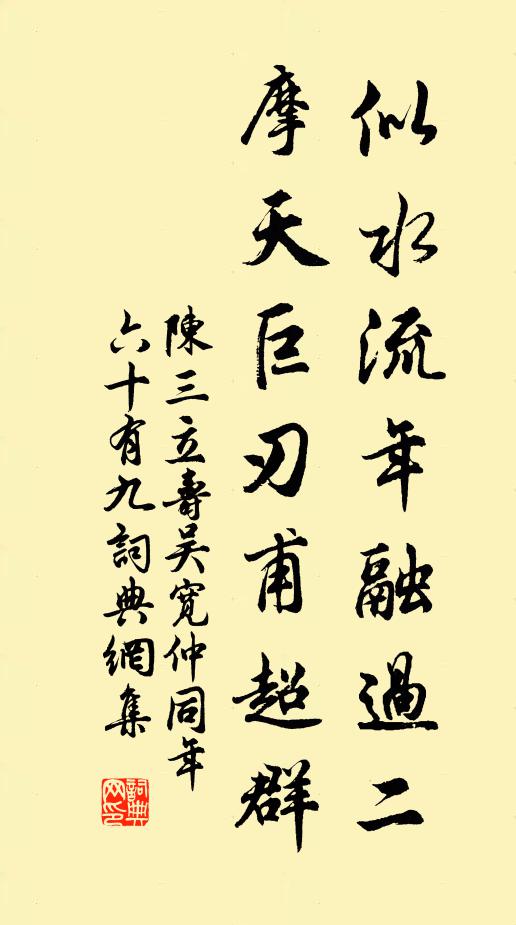 似水流年融過二
摩天巨刃甫超群
陳三立壽吴寬仲同年
六十有九詞典網集
詞典網印